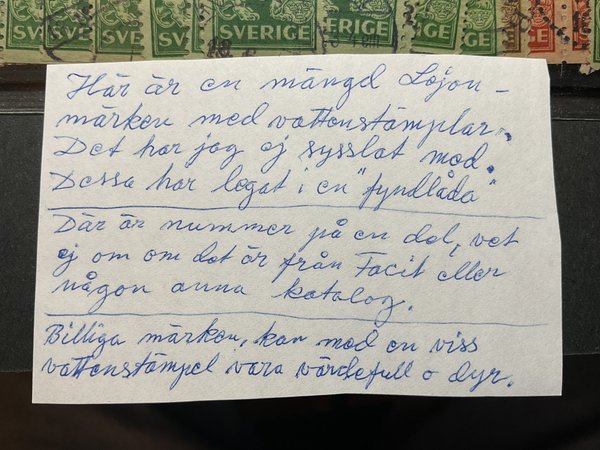 SVERIGE SVERIGE
Här är en mängd Lejon-
märken med vattenstämplar.
Det har jag ej sysslat med.
Dessa har legat i en "fyndlåda"
Där är nummer på en del, vet
ej om om det är från Facit eller
någon anna katalog.
Billiga märken, kan med en viss
vattenstämpel vara värdefull o dyr.